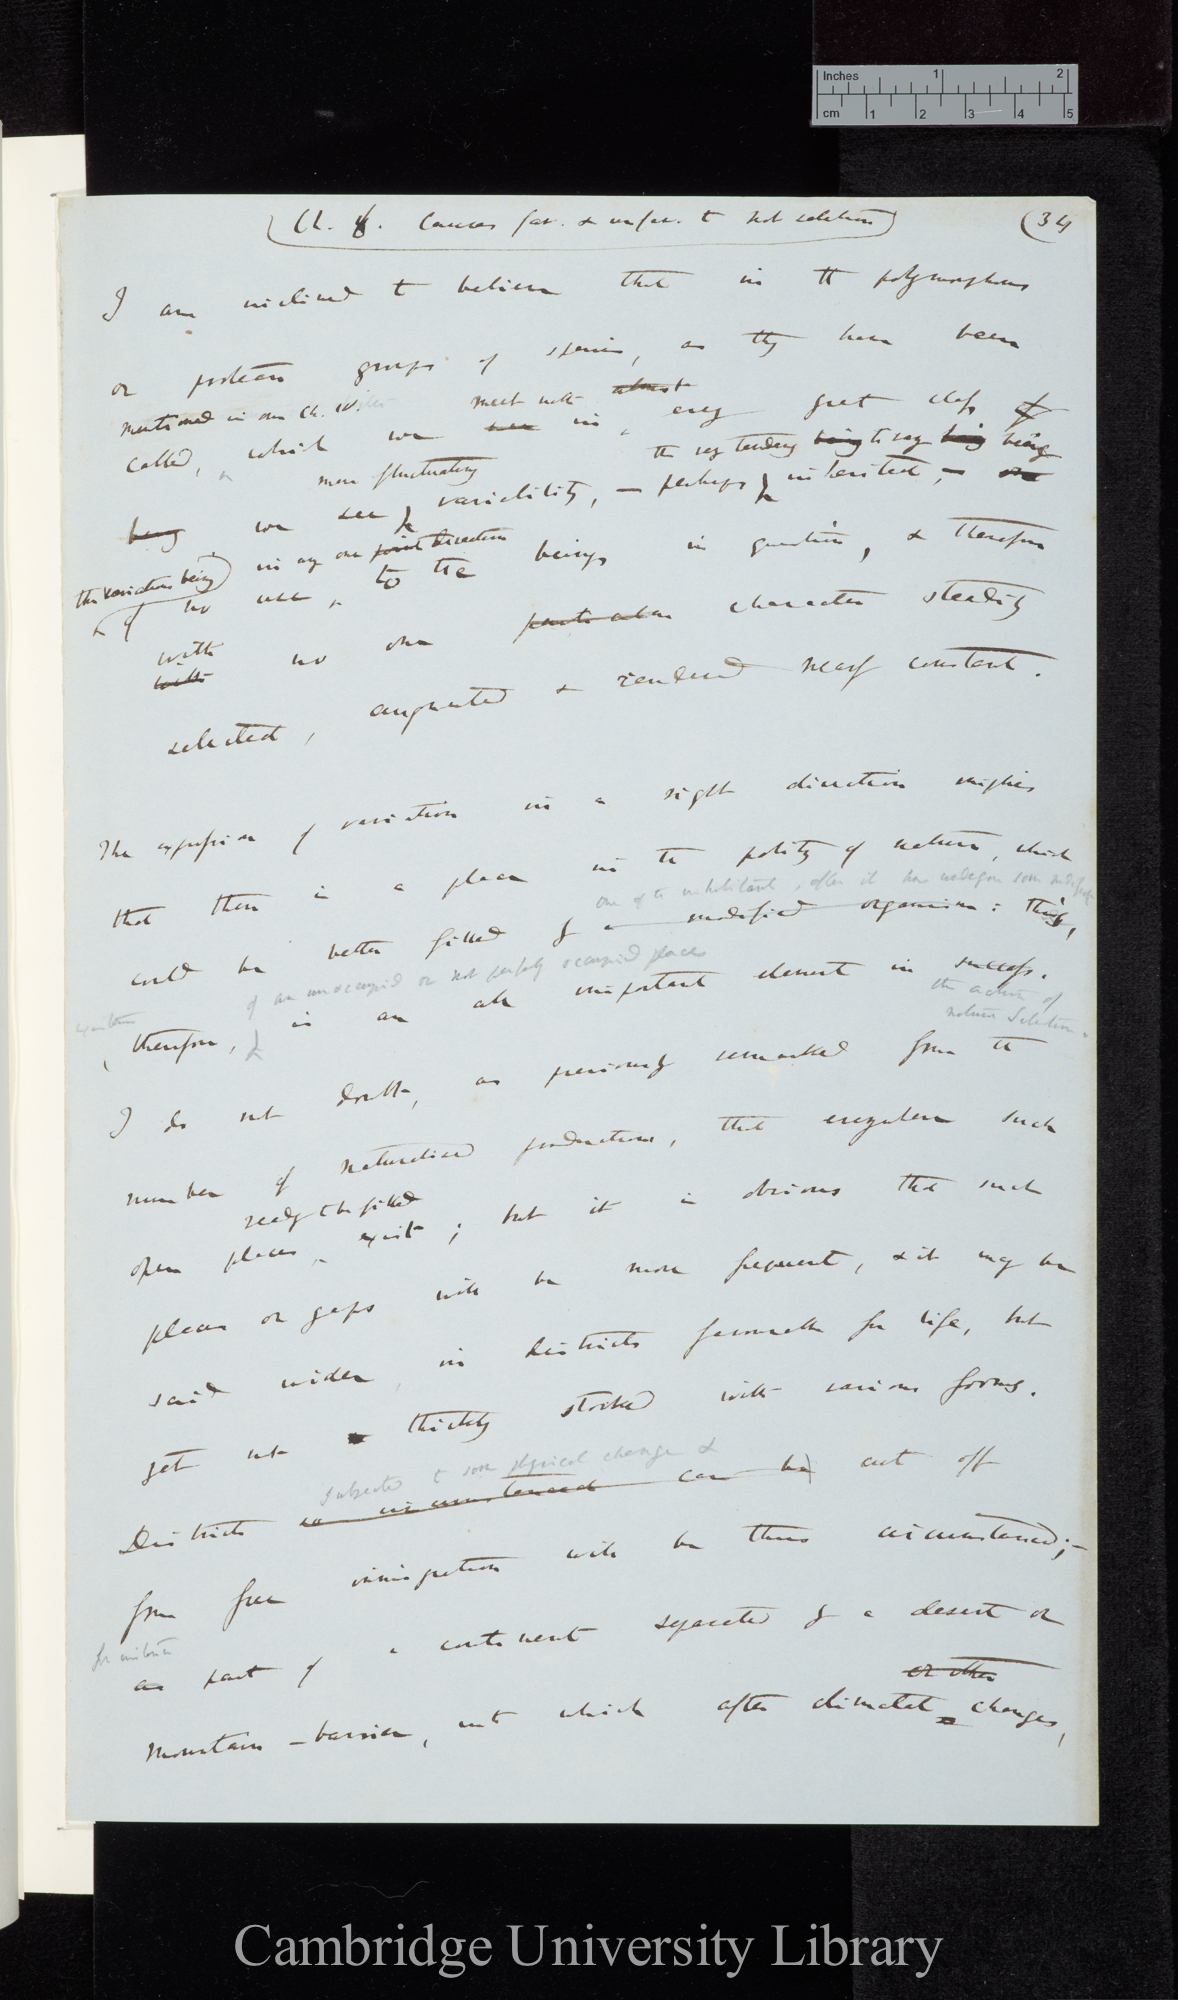 Inches 1 2
cm 1 2 3 4 5
(Ch. 6. Causes fav. & unfav. to nat selection) (34
I am inclined to believe that in the polymorphous
or protean groups of species, as they have been
mentioned in our Ch. IV. meet with almost
called, which we see in, every great class,
more fluctuating the very tendency being to vary being being
being we see variability, — perhaps inherited, —
the variations being in any one direction
of no use to the beings in question, & therefore
with no one particular character steadily
with
selected, augmented & rendered nearly constant.
The expression of variation in a right direction implies
that there is a place in the polity of nature, which
one of the inhabitants, after it has undergone some modification
could be better filled by a modified organism: this,
of an unoccupied or not perfectly occupied place
existence
therefore, is an all important element in success.
the action of
natural Selection.
I do not doubt, as previously remarked from the
number of naturalised productions, that everywhere such
ready to be filled
open places exist; but it is obvious that such
places or gaps will be more frequent, & it may be
said wider, in districts favourable for life, but
yet not thickly stocked with various forms.
subjected to some physical change &
Districts so circumstanced can be cut off
from free immigration will be thus circumstanced; —
for instance
as part of a continent separated by a desert or
or other
mountain-barrier, and which after climatal changes,
Cambridge University Library